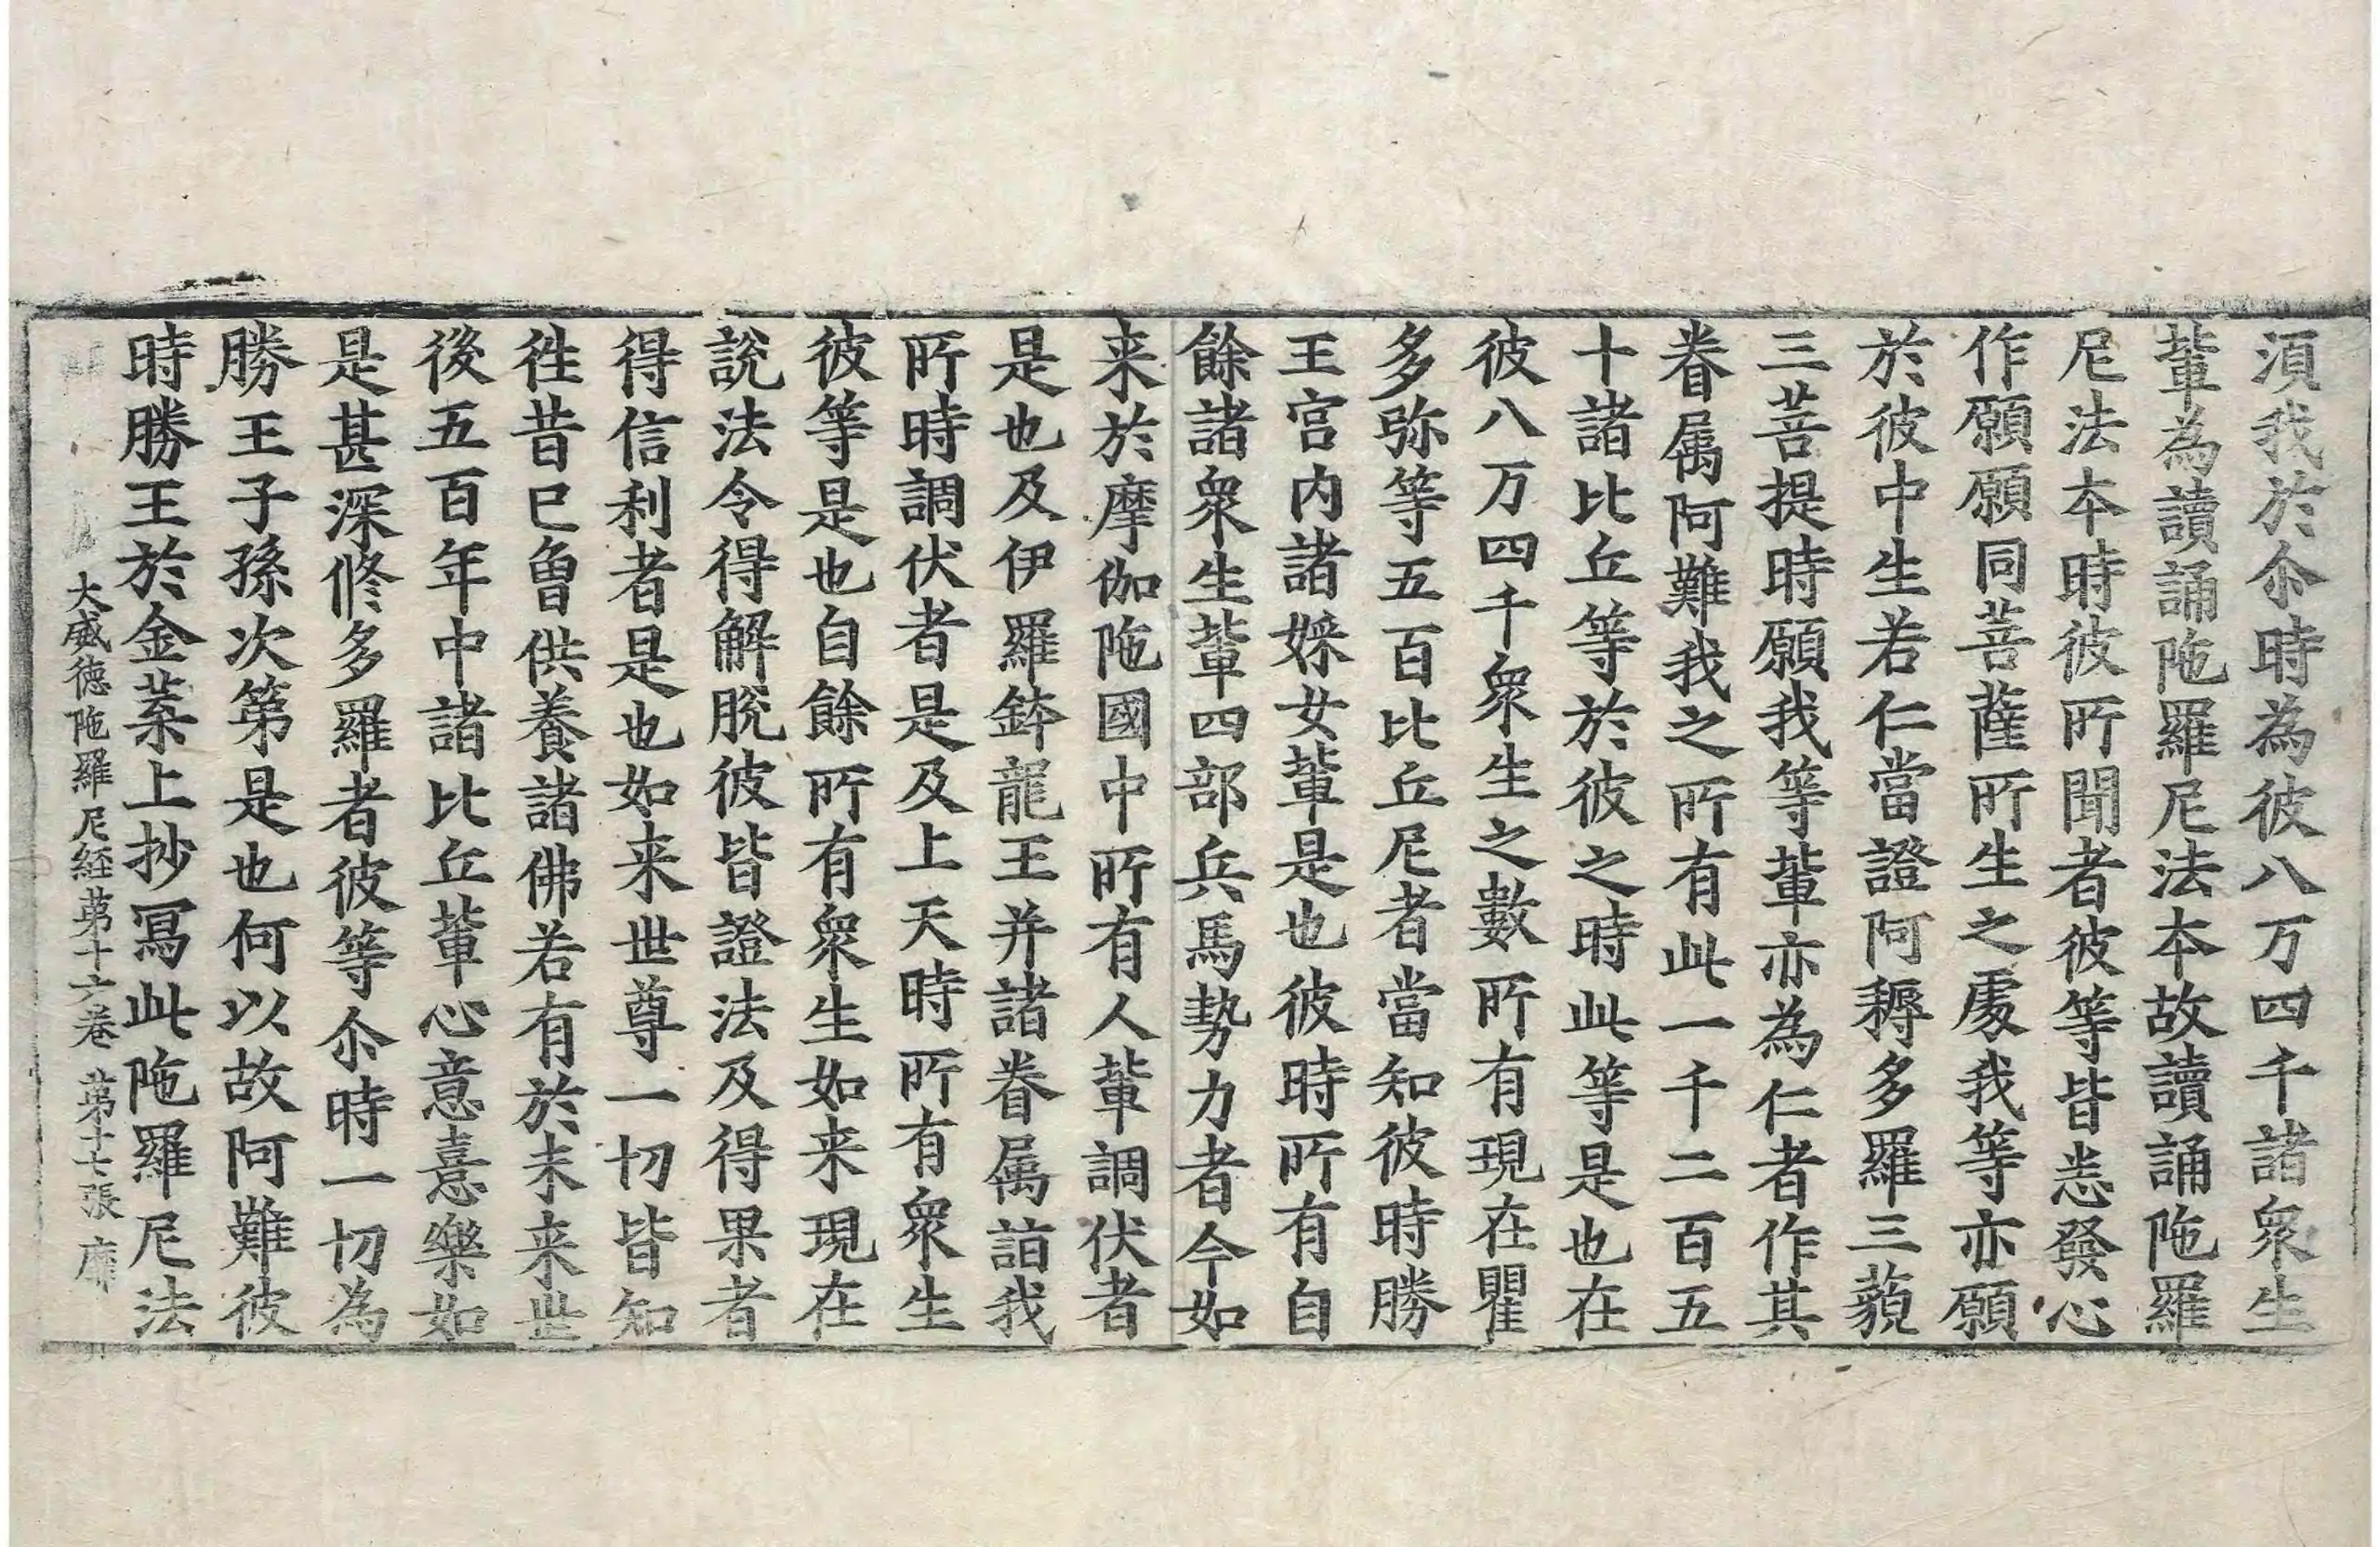 湏我於尒時為彼八万四千諸衆生
軰為讀誦陁羅尼法本故讀誦陁羅
尼法本時彼所聞者彼等皆悉發心
作願願同菩薩所生之處我等亦願
於彼中生若仁當證阿耨多羅三藐
三菩提時願我等軰亦為仁者作其
眷属阿難我之所有此一千二百五
十諸比丘等於彼之時此等是也在
彼八万四千衆生之數所有現在瞿
多弥等五百比丘尼者當知彼時勝
王宫内諸婇女軰是也彼時所有自
餘諸衆生軰四部兵馬勢力者今如
来於摩伽陁國中所有人軰調伏者
是也及伊羅鉢龍王并諸眷属詣我
所時調伏者是及上天時所有衆生
彼等是也自餘所有衆生如来現在
說法令得解脫彼皆證法及得果者
得信利者是也如来世尊一切皆知
徃昔已曾供養諸佛若有於未来世
後五百年中諸比丘軰心意憙樂如
是甚深修多羅者彼等尒時一切為
勝王子孫次第是也何以故阿難彼
時勝王於金葉上抄冩此陁羅尼法
大威徳陁羅尼経苐十六卷 苐十七張